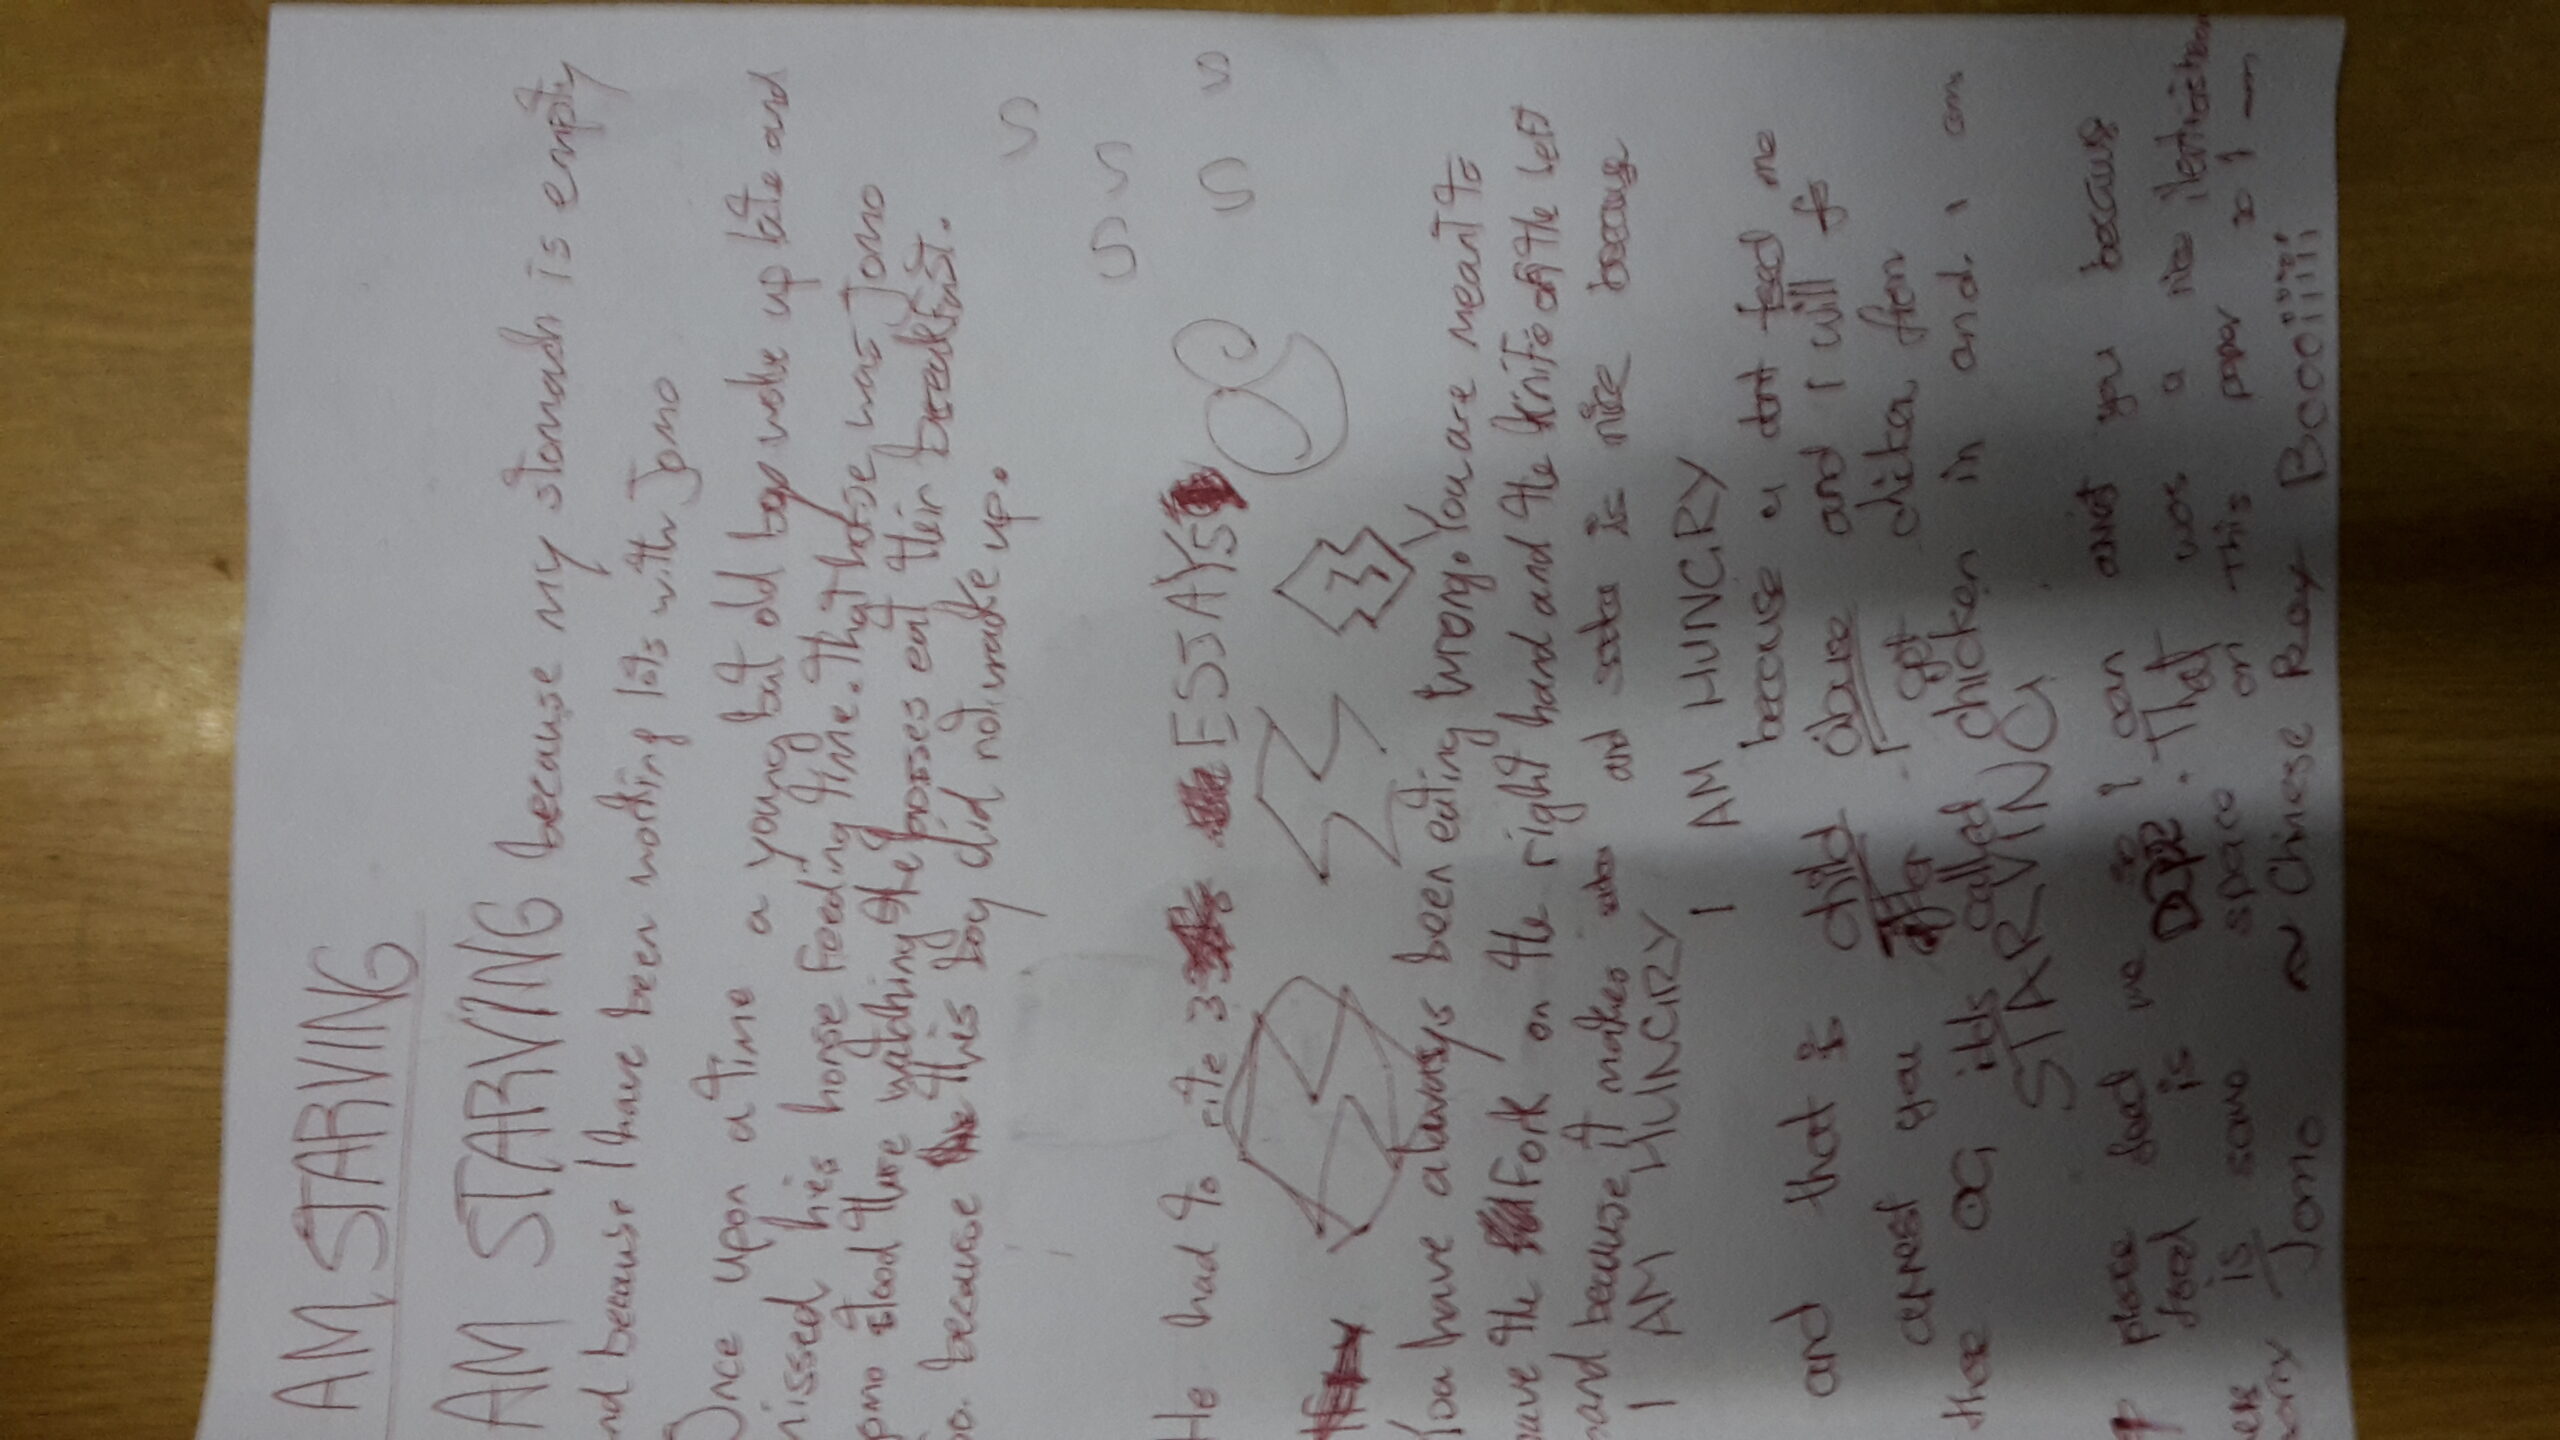 AM STARVING
AM STARVING because my stomach is empty
nd because I have been working lots with Jomo
Once upon a time a young but old boy woke up late and
missed his horse feeding time. that horse was Jomo
omo stood there watching the horses eat their breakfast.
oo. because this boy did not wake up.
S S S S S
He had to rite 3 ESSAYS
You have always been eating wrong. You are meant to
have the fork on the right hand and the knife on the left
hand because it makes and is nice because
I AM HUNGRY I AM HUNGRY
because u dont feed me
and that is child abuse and I will fs
arrest you after I get chiken from
there OG its called chicken in and. I am
STARVING
please feed me so I can assist you because
food is DOPE. That was a nice
is some space on this paper so I —
Jomo ~ Chinese Rex Booiiiii